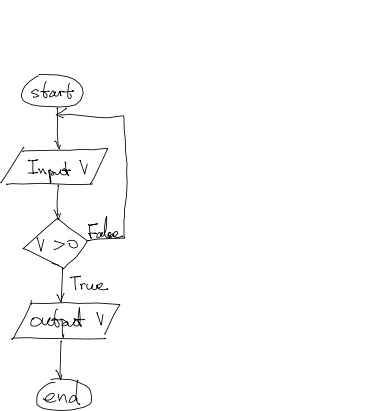 start
Input V
V >0
False
True
output V
end